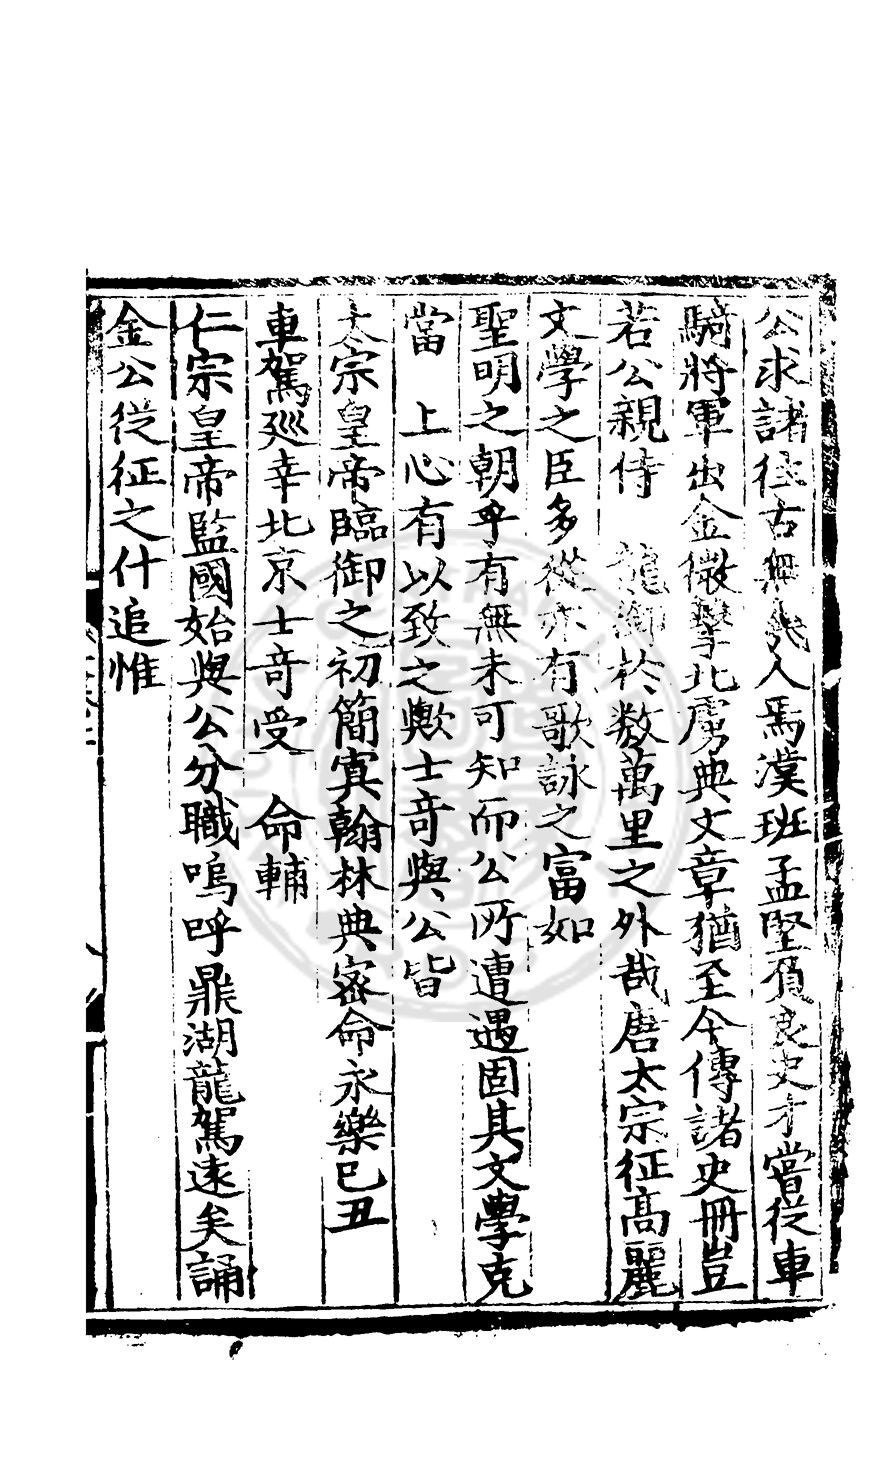 公求諸往古無幾人焉漢班孟堅負良史才嘗從車
騎將軍出金微擊北虜典文章猶至今傳諸史冊豈
若公親侍　龍御於数萬里之外哉唐太宗征高麗
文學之臣多從亦有歌詠之富如
聖明之朝乎有無未可知而公所遭遇固其文學克
當　上心有以致之歟士奇與公皆
太宗皇帝臨御之初簡寘翰林典密命永樂己丑
車駕廵幸北京士奇受　命輔
仁宗皇帝監國始與公分職嗚呼鼎湖龍駕遠矣誦
金公從征之什追惟